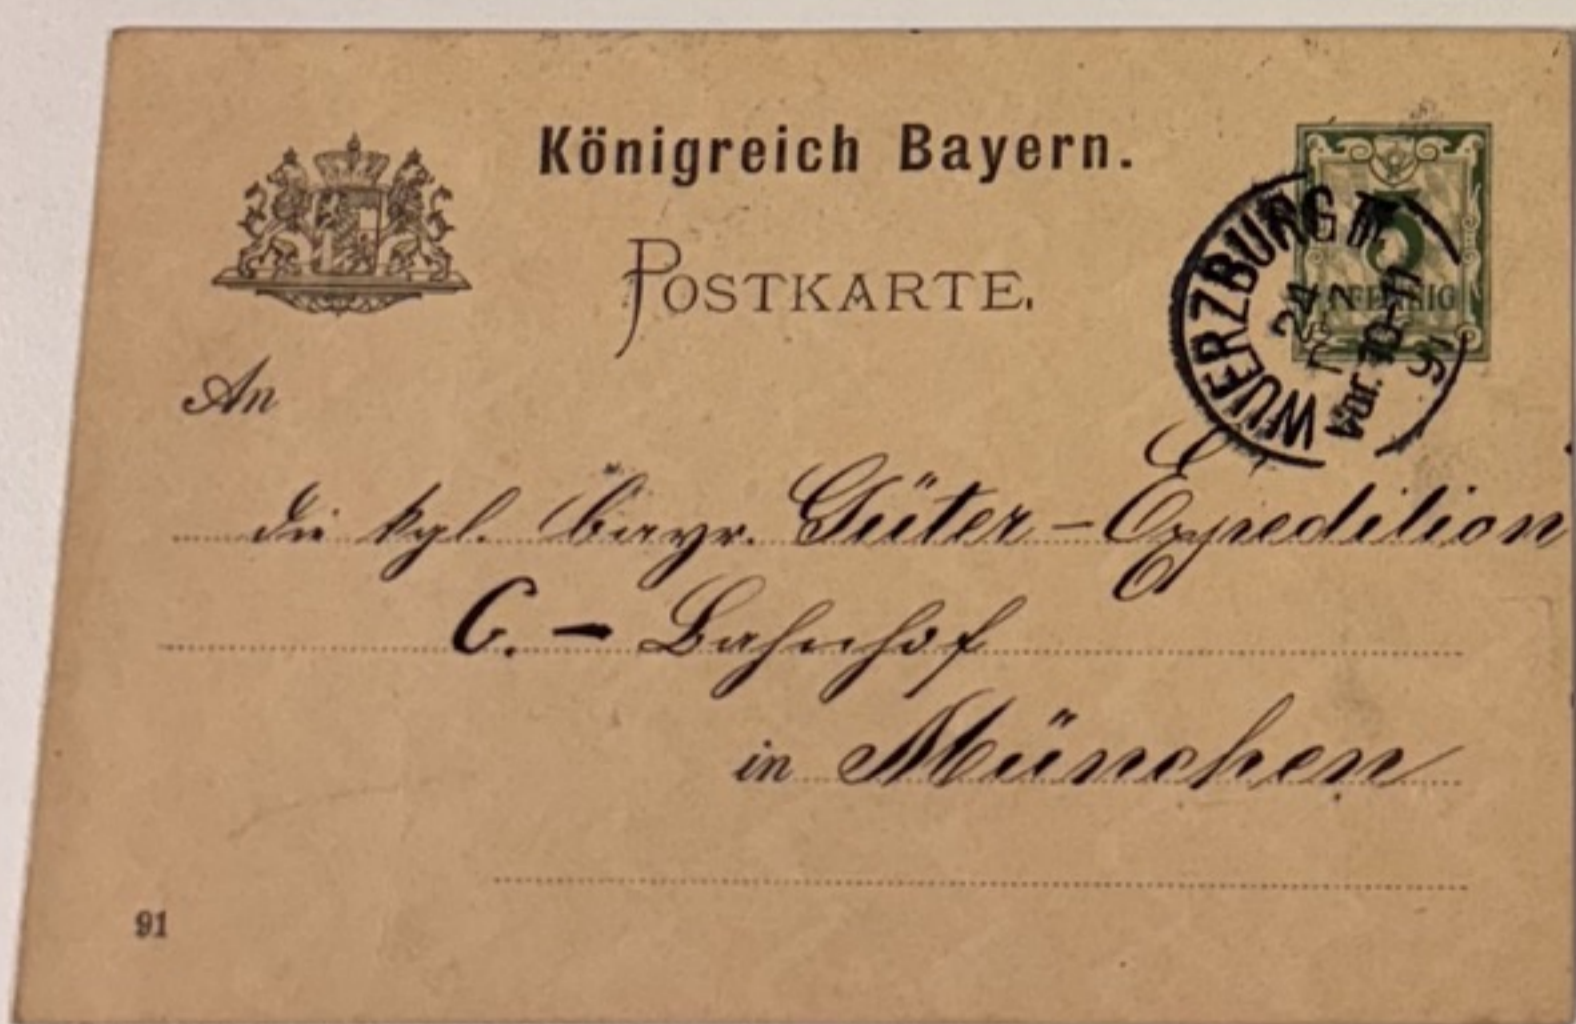 Königreich Bayern.
POSTKARTE.
5
PFENNIG
WUERZBURG III.
24
SEP
Vor. 10-11
91
An
die kgl. bayr. Güter-Expedition
C. - Bahnhof
in München
91